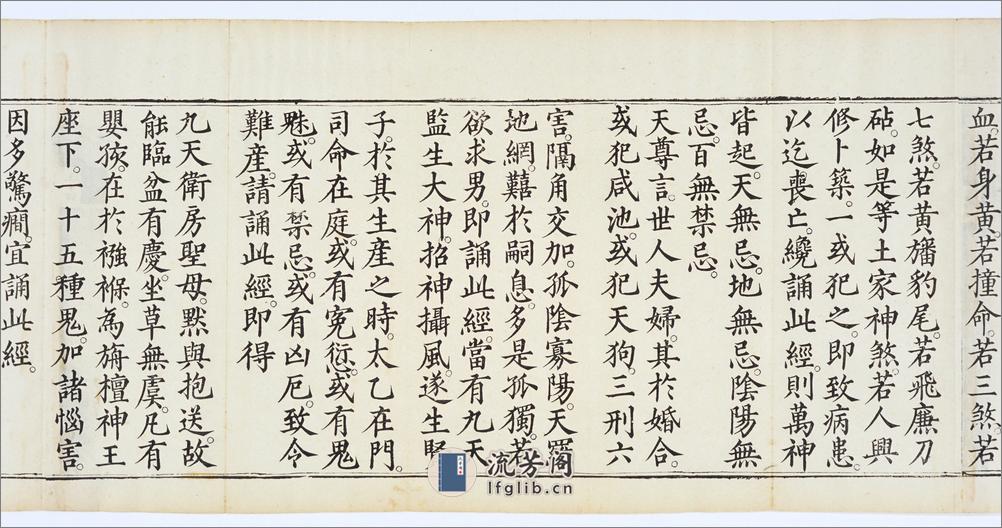 血若身黃若撞命若三煞若
七煞若黃旛豹尾若飛廉刀
砧如是等土家神煞若人興
修卜築一或犯之即致病患
以迄喪亡纔誦此經則萬神
皆起天無忌地無忌陰陽無
忌百無禁忌
天尊言世人夫婦其於婚合
或犯咸池或犯天狗三刑六
害隔角交加孤陰寡陽天羅
地網囏於嗣息多是孤獨若
欲求男即誦此經當有九天
監生大神招神攝風遂生賢
子於其生產之時太乙在門
司命在庭或有冤愆或有鬼
魅或有禁忌或有凶厄致令
難產請誦此經即得
九天衛房聖母默與抱送故
能臨盆有慶坐草無虞凡有
嬰孩在於襁褓為旃檀神王
座下一十五種鬼加諸惱害
因多驚癇宜誦此經
流芳閣
lfglib.cn